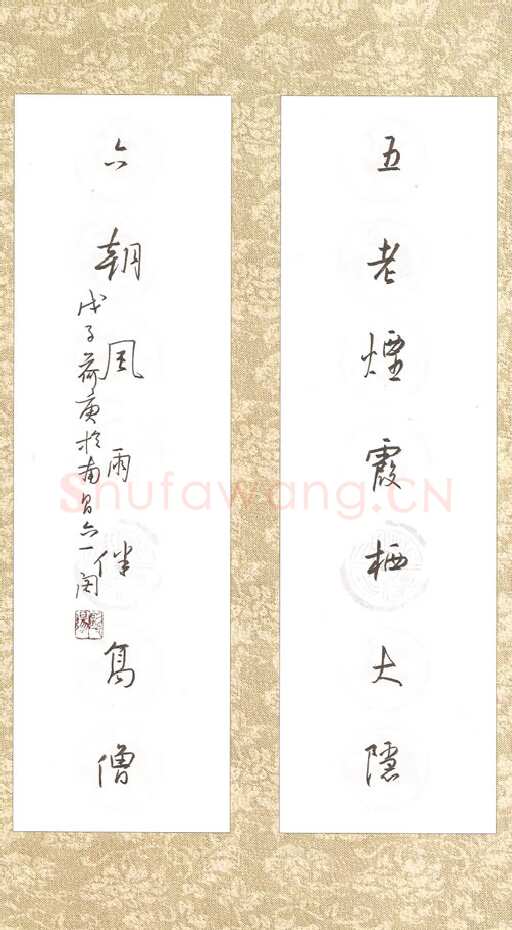 五老煙霞栖大隱
六朝風雨伴高僧
戊子荷庚於南昌六一阁
Shufawang.CN